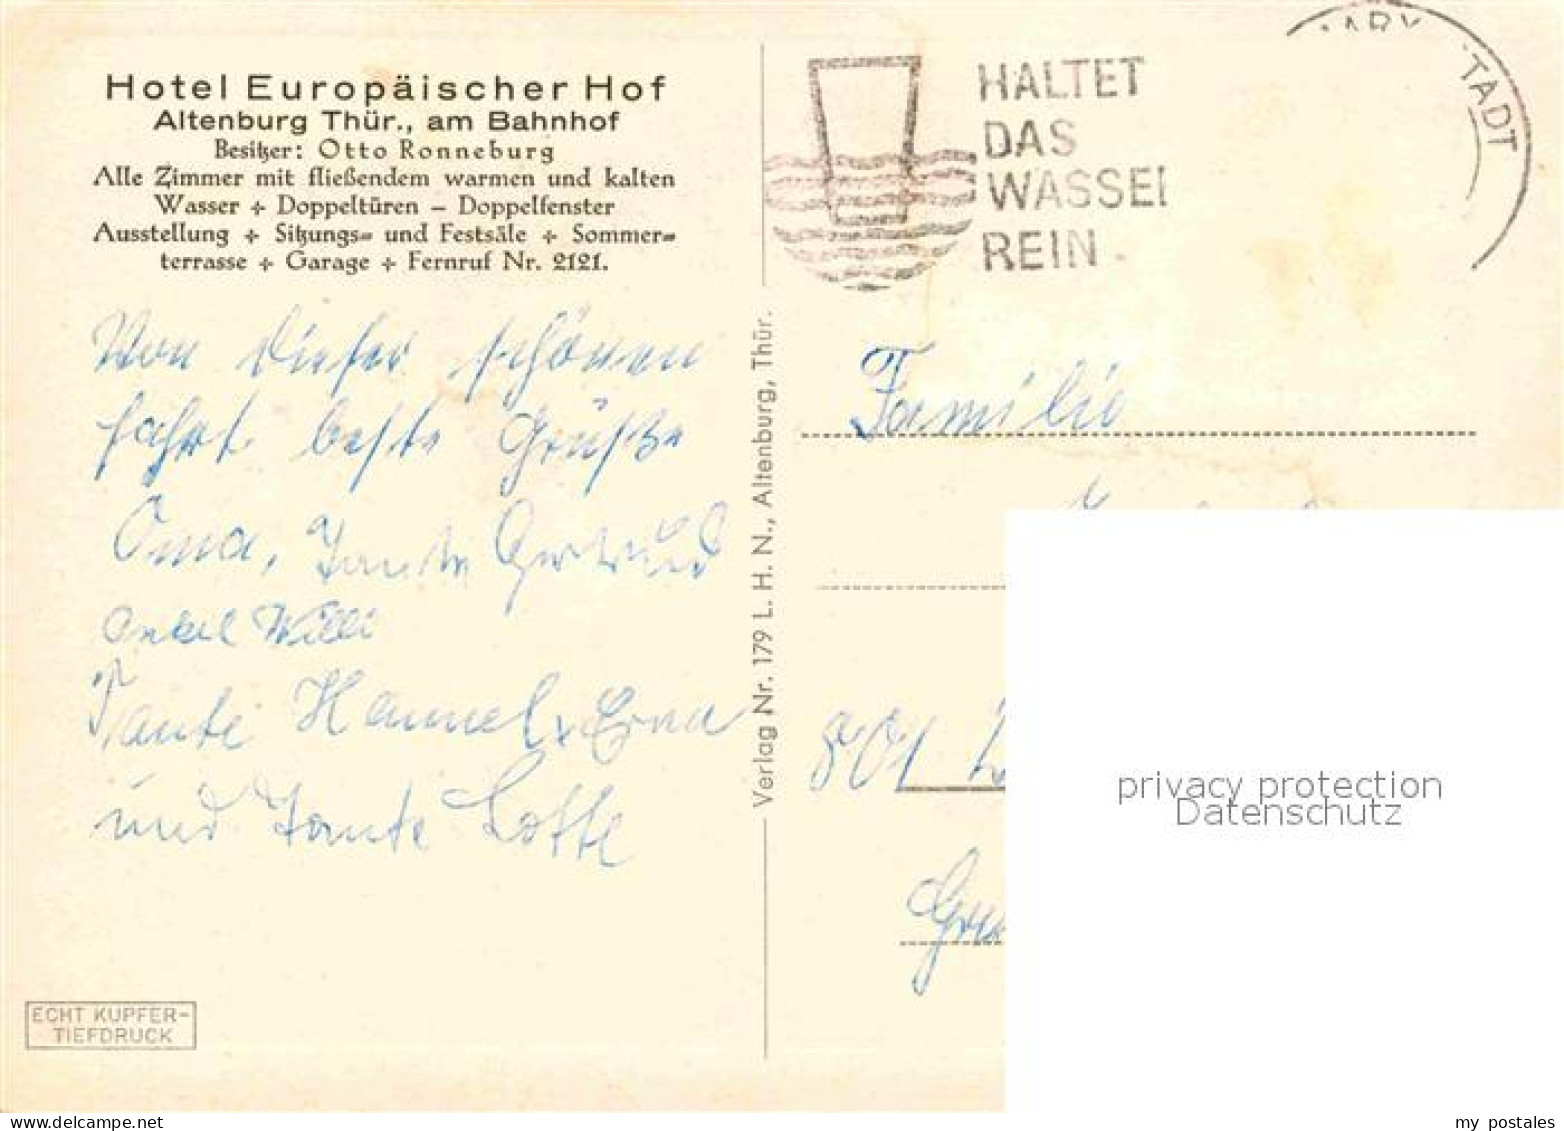 Hotel Europäischer Hof
Altenburg Thür., am Bahnhof
Besitzer: Otto Ronneburg
Alle Zimmer mit fließendem warmen und kalten
Wasser + Doppeltüren – Doppelfenster
Ausstellung + Sitzungs= und Festsäle + Sommer=
terrasse + Garage + Fernruf Nr. 2121.
Von dieser schönen
Fahrt beste Grüße
Oma, Tante Gertrud
Onkel Willi
Tante Hannel, Erna
und Tante Lotte
ECHT KUPFER-
TIEFDRUCK
Verlag Nr. 179 L. H. N., Altenburg, Thür.
HALTET
DAS
WASSER
REIN
TADT
Familie
801
privacy protection
Datenschutz
my postales